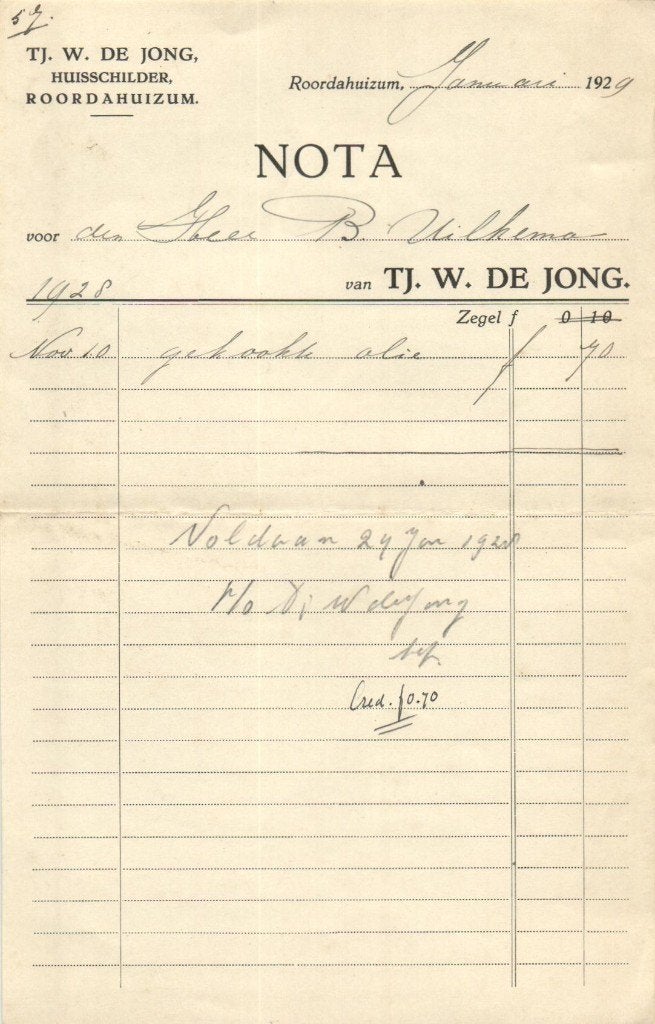 57.
TJ. W. DE JONG,
HUISSCHILDER,
ROORDAHUIZUM.
Roordahuizum, Januari 1929
NOTA
voor den Heer B. Uilkema
1928 van TJ. W. DE JONG.
Zegel f 0 10
Nov 10 gekookte olie f 70
Voldaan 29 Jan 1928
Tj W de Jong
Cred. f 0.70